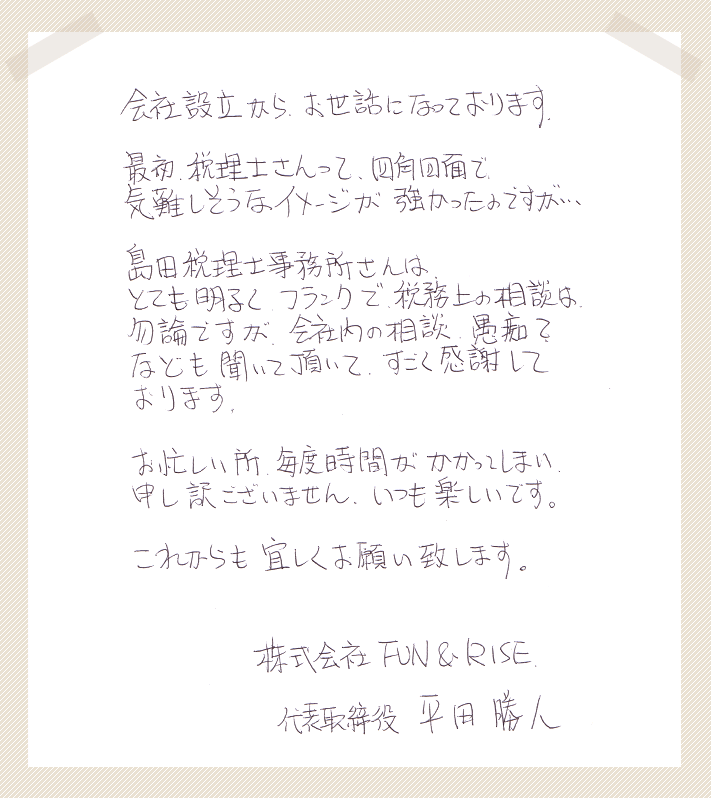 会社設立から、お世話になっております。
最初、税理士さんって、四角四面で
気難しそうなイメージが強かったのですが…
島田税理士事務所さんは、
とても明るく、フランクで、税務上の相談は、
勿論ですが、会社内の相談、愚痴？
なども聞いて頂いて、すごく感謝して
おります。
お忙しい所、毎度時間がかかってしまい、
申し訳ございません、いつも楽しいです。
これからも宜しくお願い致します。
株式会社 FUN & RISE.
代表取締役 平田 勝人